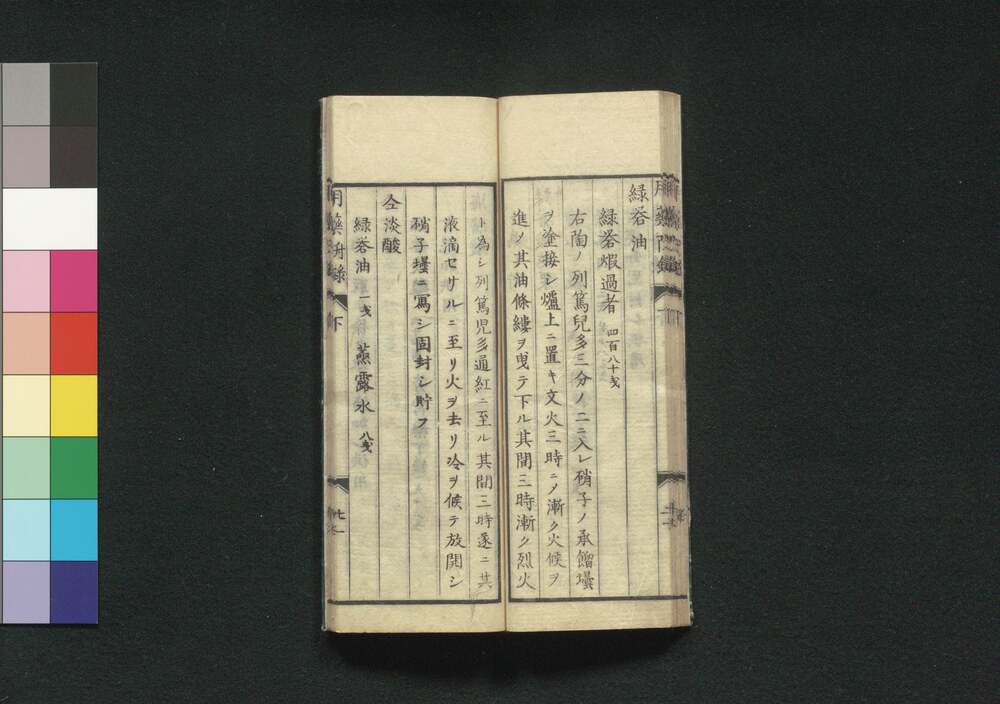 緑礬油
緑礬煆過者 四百八十戔
右陶ノ列篤兒多三分ノ二ニ入レ硝子ノ承餾壜
ヲ塗接シ爐上ニ置キ文火三時ニノ漸ク火候ヲ
進ノ其油條縷ヲ曳テ下ル其間三時漸ク烈火
ト為シ列篤児多通紅ニ至ル其間三時遂ニ其
液滴セサルニ至リ火ヲ去リ冷ヲ候テ放開シ
硝子壜ニ寫シ固封シ貯フ
仝淡酸
緑礬油 一戔 蒸露水 八戔
下